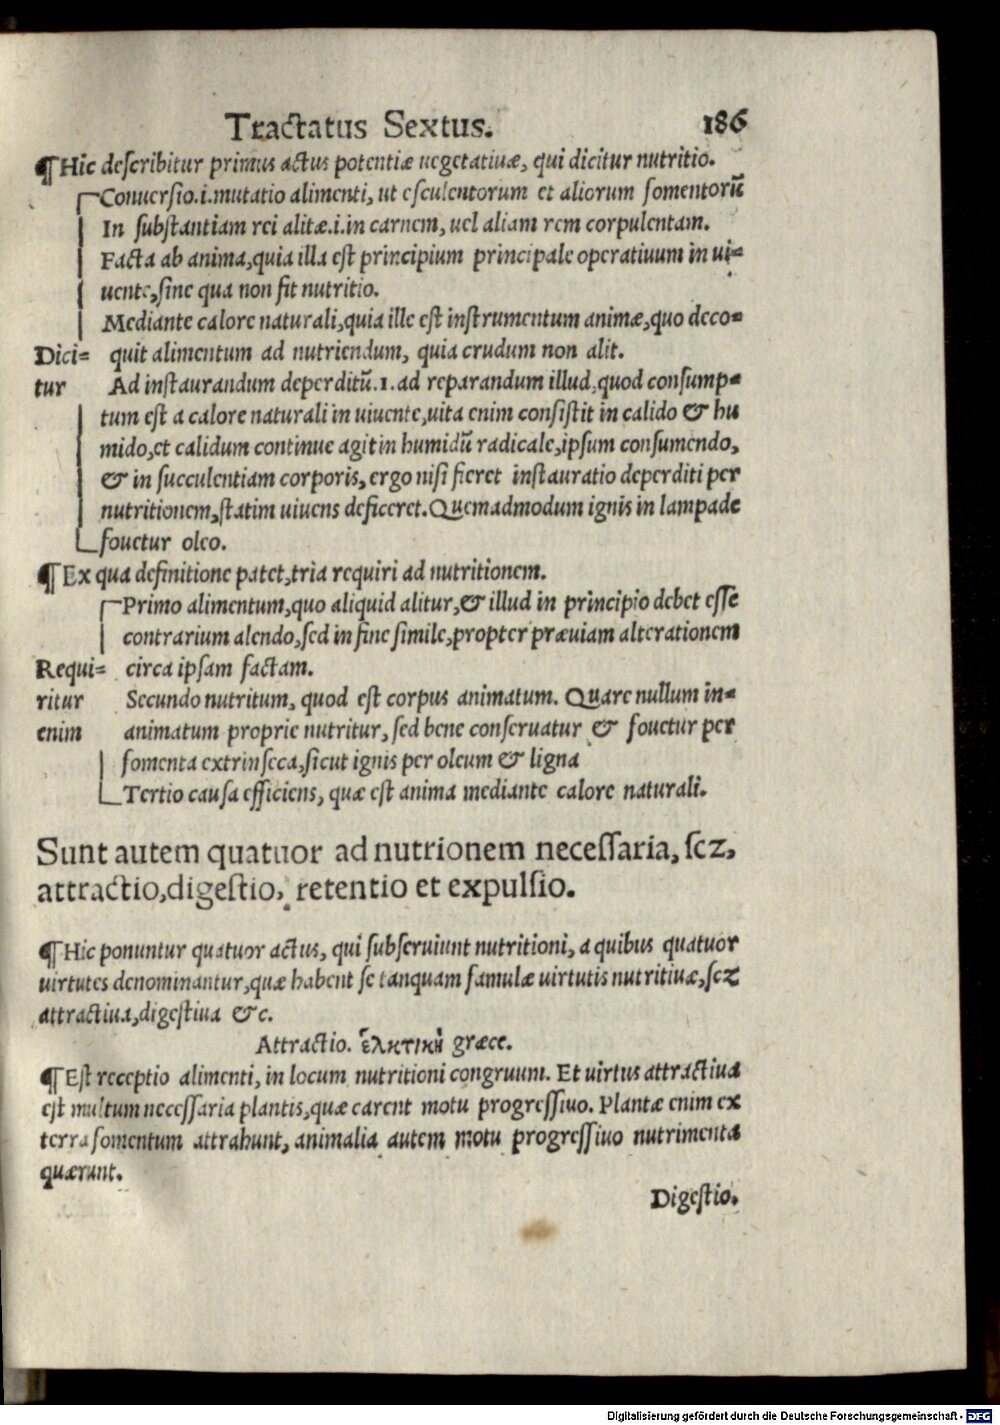 Tractatus Sextus. 186
¶Hic describitur primus actus potentiæ uegetatiuæ, qui dicitur nutritio.
Conuersio.i.mutatio alimenti, ut esculentorum et aliorum fomentorū
In substantiam rei alitæ.i.in carnem, uel aliam rem corpulentam.
Facta ab anima,quia illa est principium principale operatiuum in ui=
uente,sine qua non fit nutritio.
Mediante calore naturali,quia ille est instrumentum animæ,quo deco=
Dici= quit alimentum ad nutriendum, quia crudum non alit.
tur Ad instaurandum deperditū.1.ad reparandum illud,quod consump=
tum est a calore naturali in uiuente,uita enim consistit in calido & hu
mido,et calidum continue agit in humidū radicale,ipsum consumendo,
& in succulentiam corporis, ergo nisi fieret instauratio deperditi per
nutritionem,statim uiuens deficeret.Quemadmodum ignis in lampade
fouetur oleo.
¶Ex qua definitione patet,tria requiri ad nutritionem.
Primo alimentum,quo aliquid alitur,& illud in principio debet esse
contrarium alendo,sed in fine simile,propter præuiam alterationem
Requi= circa ipsam factam.
ritur Secundo nutritum, quod est corpus animatum. Quare nullum in=
enim animatum proprie nutritur, sed bene conseruatur & fouetur per
fomenta extrinseca,sicut ignis per oleum & ligna
Tertio causa efficiens, quæ est anima mediante calore naturali.
Sunt autem quatuor ad nutrionem necessaria, scz,
attractio,digestio, retentio et expulsio.
¶Hic ponuntur quatuor actus, qui subseruiunt nutritioni, a quibus quatuor
uirtutes denominantur,quæ habent se tanquam famulæ uirtutis nutritiuæ,scz
attractiua,digestiua &c.
Attractio. ἑλκτικὴ græce.
¶Est receptio alimenti, in locum nutritioni congruum. Et uirtus attractiua
est multum necessaria plantis,quæ carent motu progressiuo. Plantæ enim ex
terra fomentum attrahunt, animalia autem motu progressiuo nutrimenta
quærunt.
Digestio.
Digitalisierung gefördert durch die Deutsche Forschungsgemeinschaft - DFG